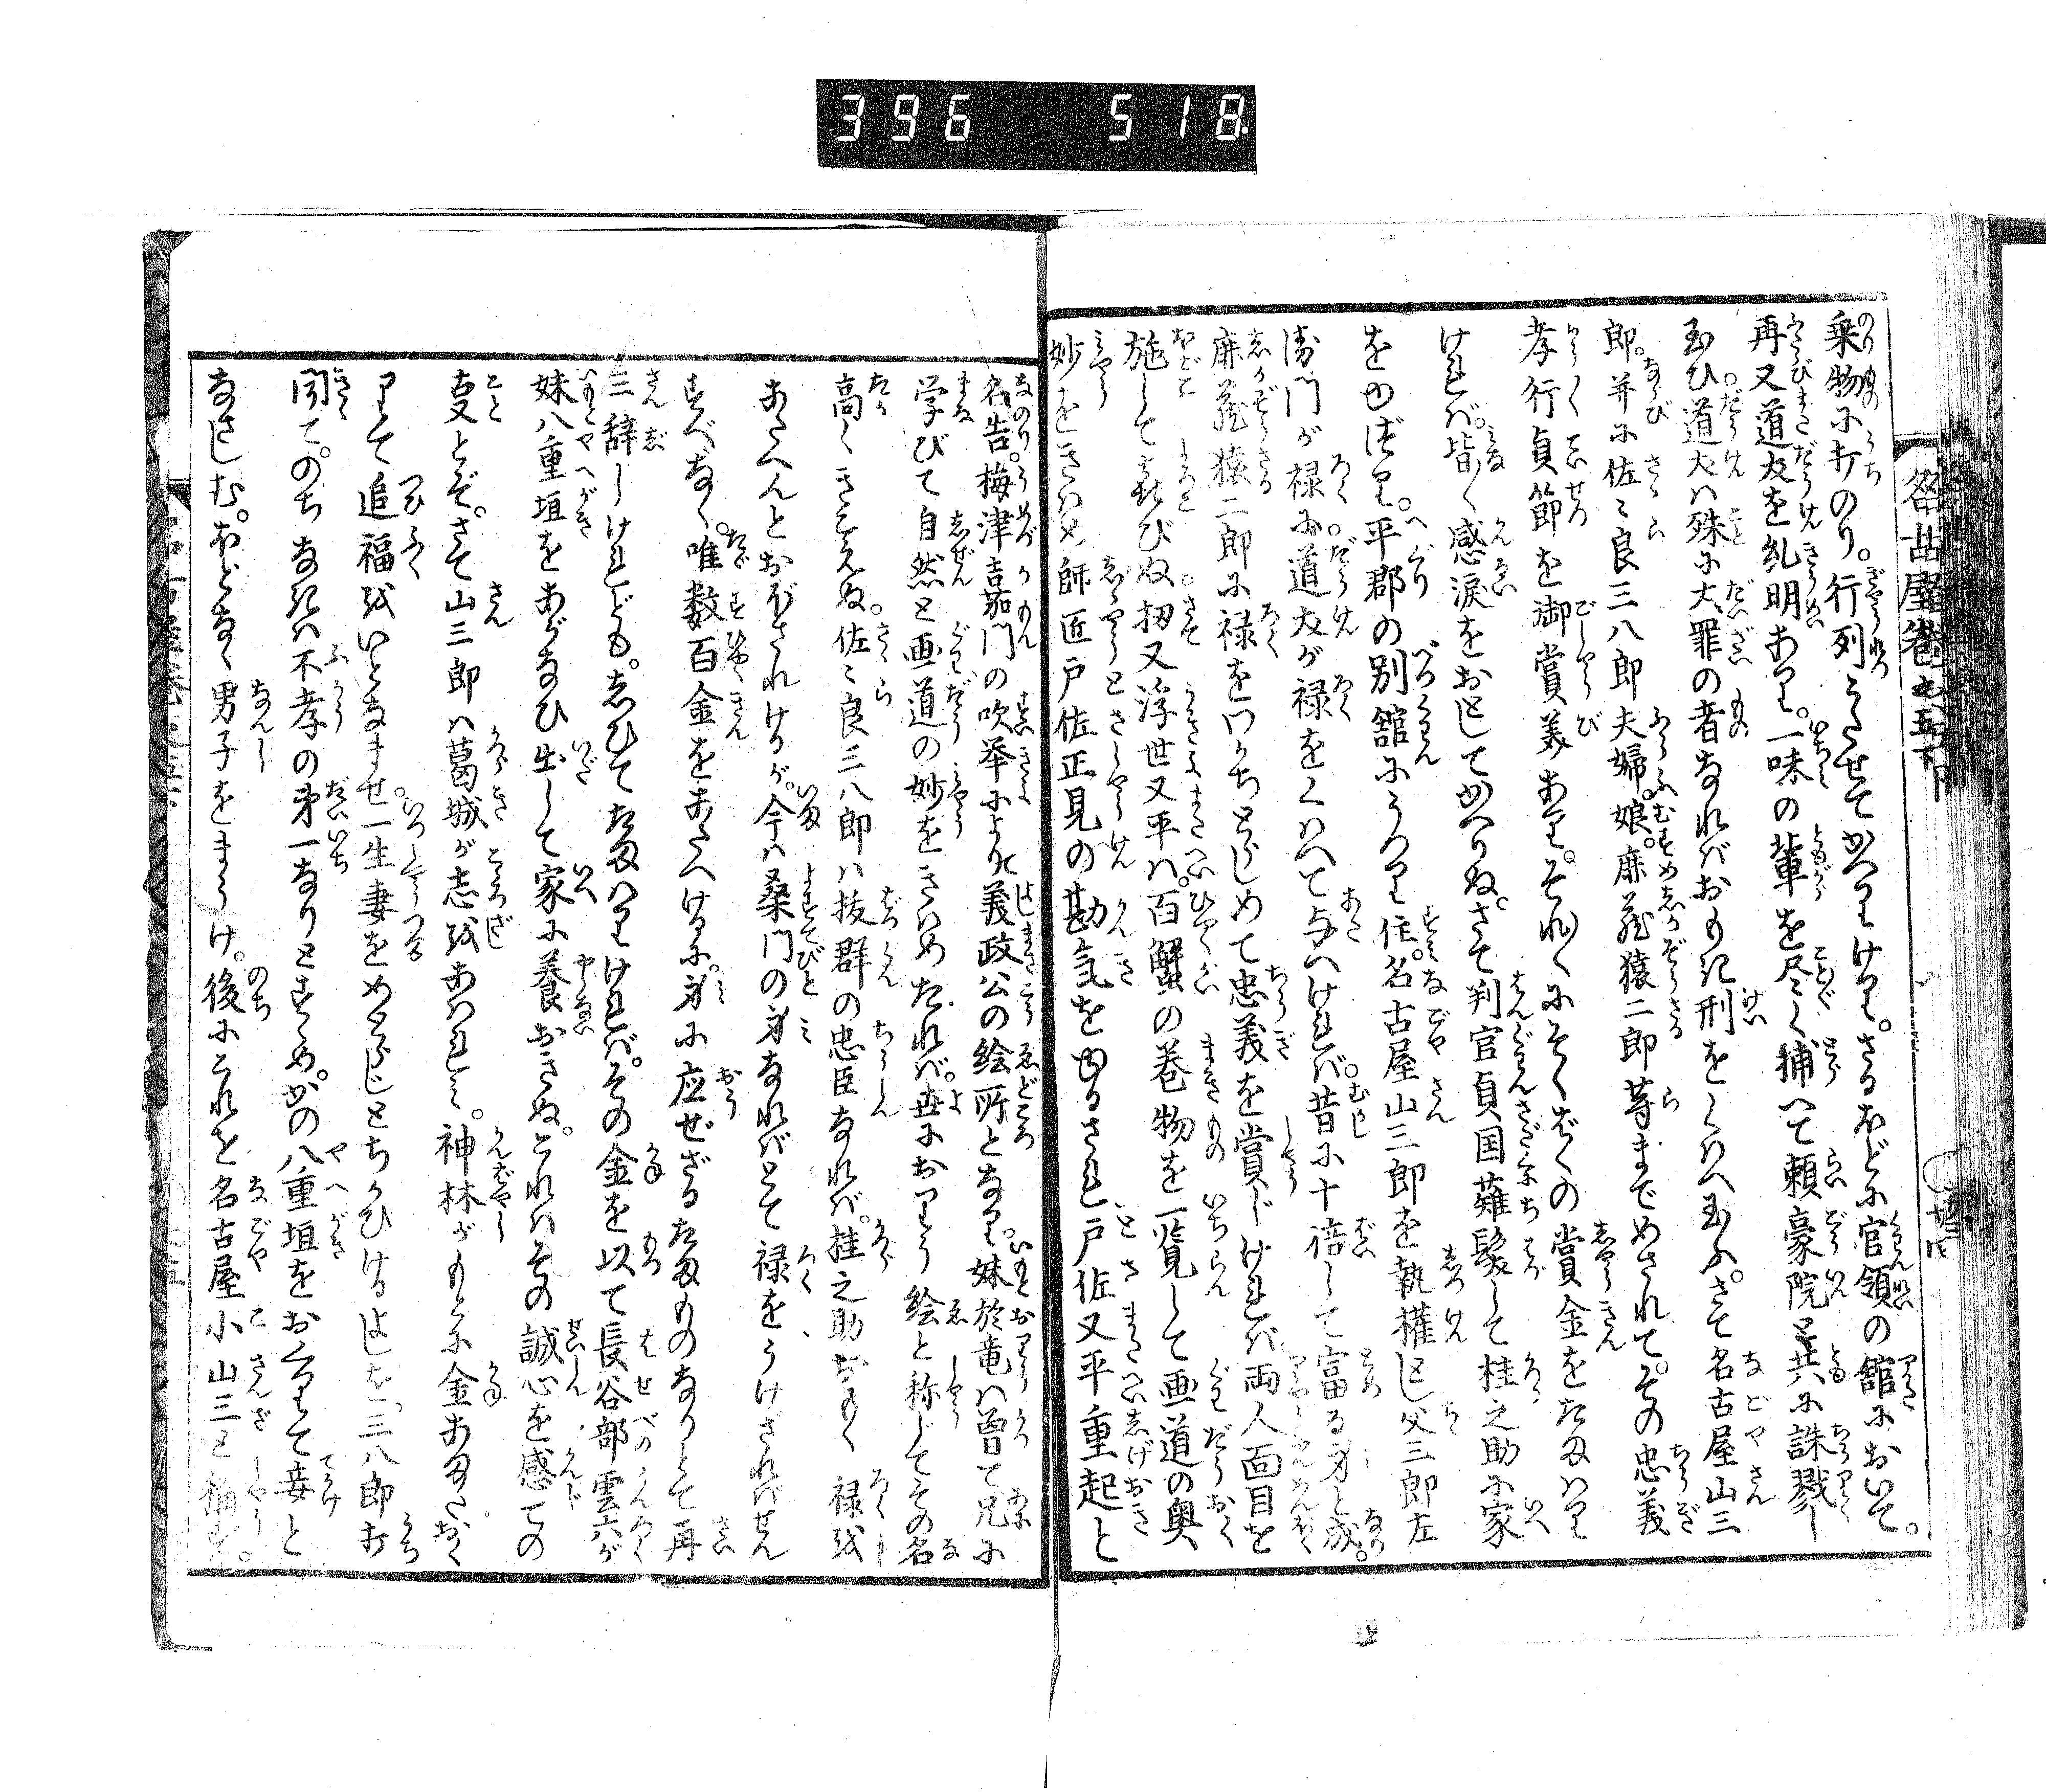 396 518
名古屋巻之五下
乗物に打のり。行列うたせてかへりけり。さるほどに官領の舘において。
再又道犬を糺明あり。一味の輩を尽く捕へて頼豪院と共に誅戮し
玉ひ。道犬ハ殊に大罪の者なれバおもき刑をくはへ玉ふ。さて名古屋山三
郎。并に佐々良三八郎夫婦。娘。鹿蔵猿二郎等までめされて。その忠義
孝行貞節を御賞美あり。それ〳〵にそくばくの賞金をたまハり
けれバ。皆〳〵感涙をおとしてかへりぬ。さて判官貞国薙髪して桂之助に家
をゆづり。平郡の別舘にうつり住。名古屋山三郎を執権とし父三郎左
衛門が禄に。道犬が禄をくはへて与へけれバ。昔に十倍して富る身と成。
鹿蔵猿二郎に禄をわかちとらしめて忠義を賞じけれバ両人面目を
施してよろこびぬ。扨又浮世又平ハ。百蟹の巻物を一覧して画道の奥
妙をきはめ師匠戸佐正見の勘気をゆるされ戸佐又平重起と
名告。梅津嘉門の吹挙によりて義政公の絵所となり。妹於竜ハ曽て兄に
学びて自然と画道の妙をきはめたれバ。世におりう絵と称じてその名
高くきこえぬ。佐々良三八郎ハ抜群の忠臣なれバ。桂之助おもく禄を
あたへんとおほされけるが。今ハ桑門の身なれバとて禄をうけざれバせん
すべなく。唯数百金をあたへけるに。身に応ぜざるたまものなりとて再
三辞しけれども。しひてたまハりけれバ。その金を以て長谷部雲六が
妹八重垣をあがなひ出して家に養おきぬ。これハその誠心を感ての
事とぞ。さて山三郎ハ葛城が志をあはれミ。神林がもとに金あまたおく
りて追福をいとなませ一生妻をめとらじとちかひけるよしを。三八郎打
聞て。のちなきハ不孝の第一なりとすゝめ。かの八重垣をおくりて妾と
なさしむ。ほどなく男子をまうけ。後にこれを名古屋小山三と称ず。